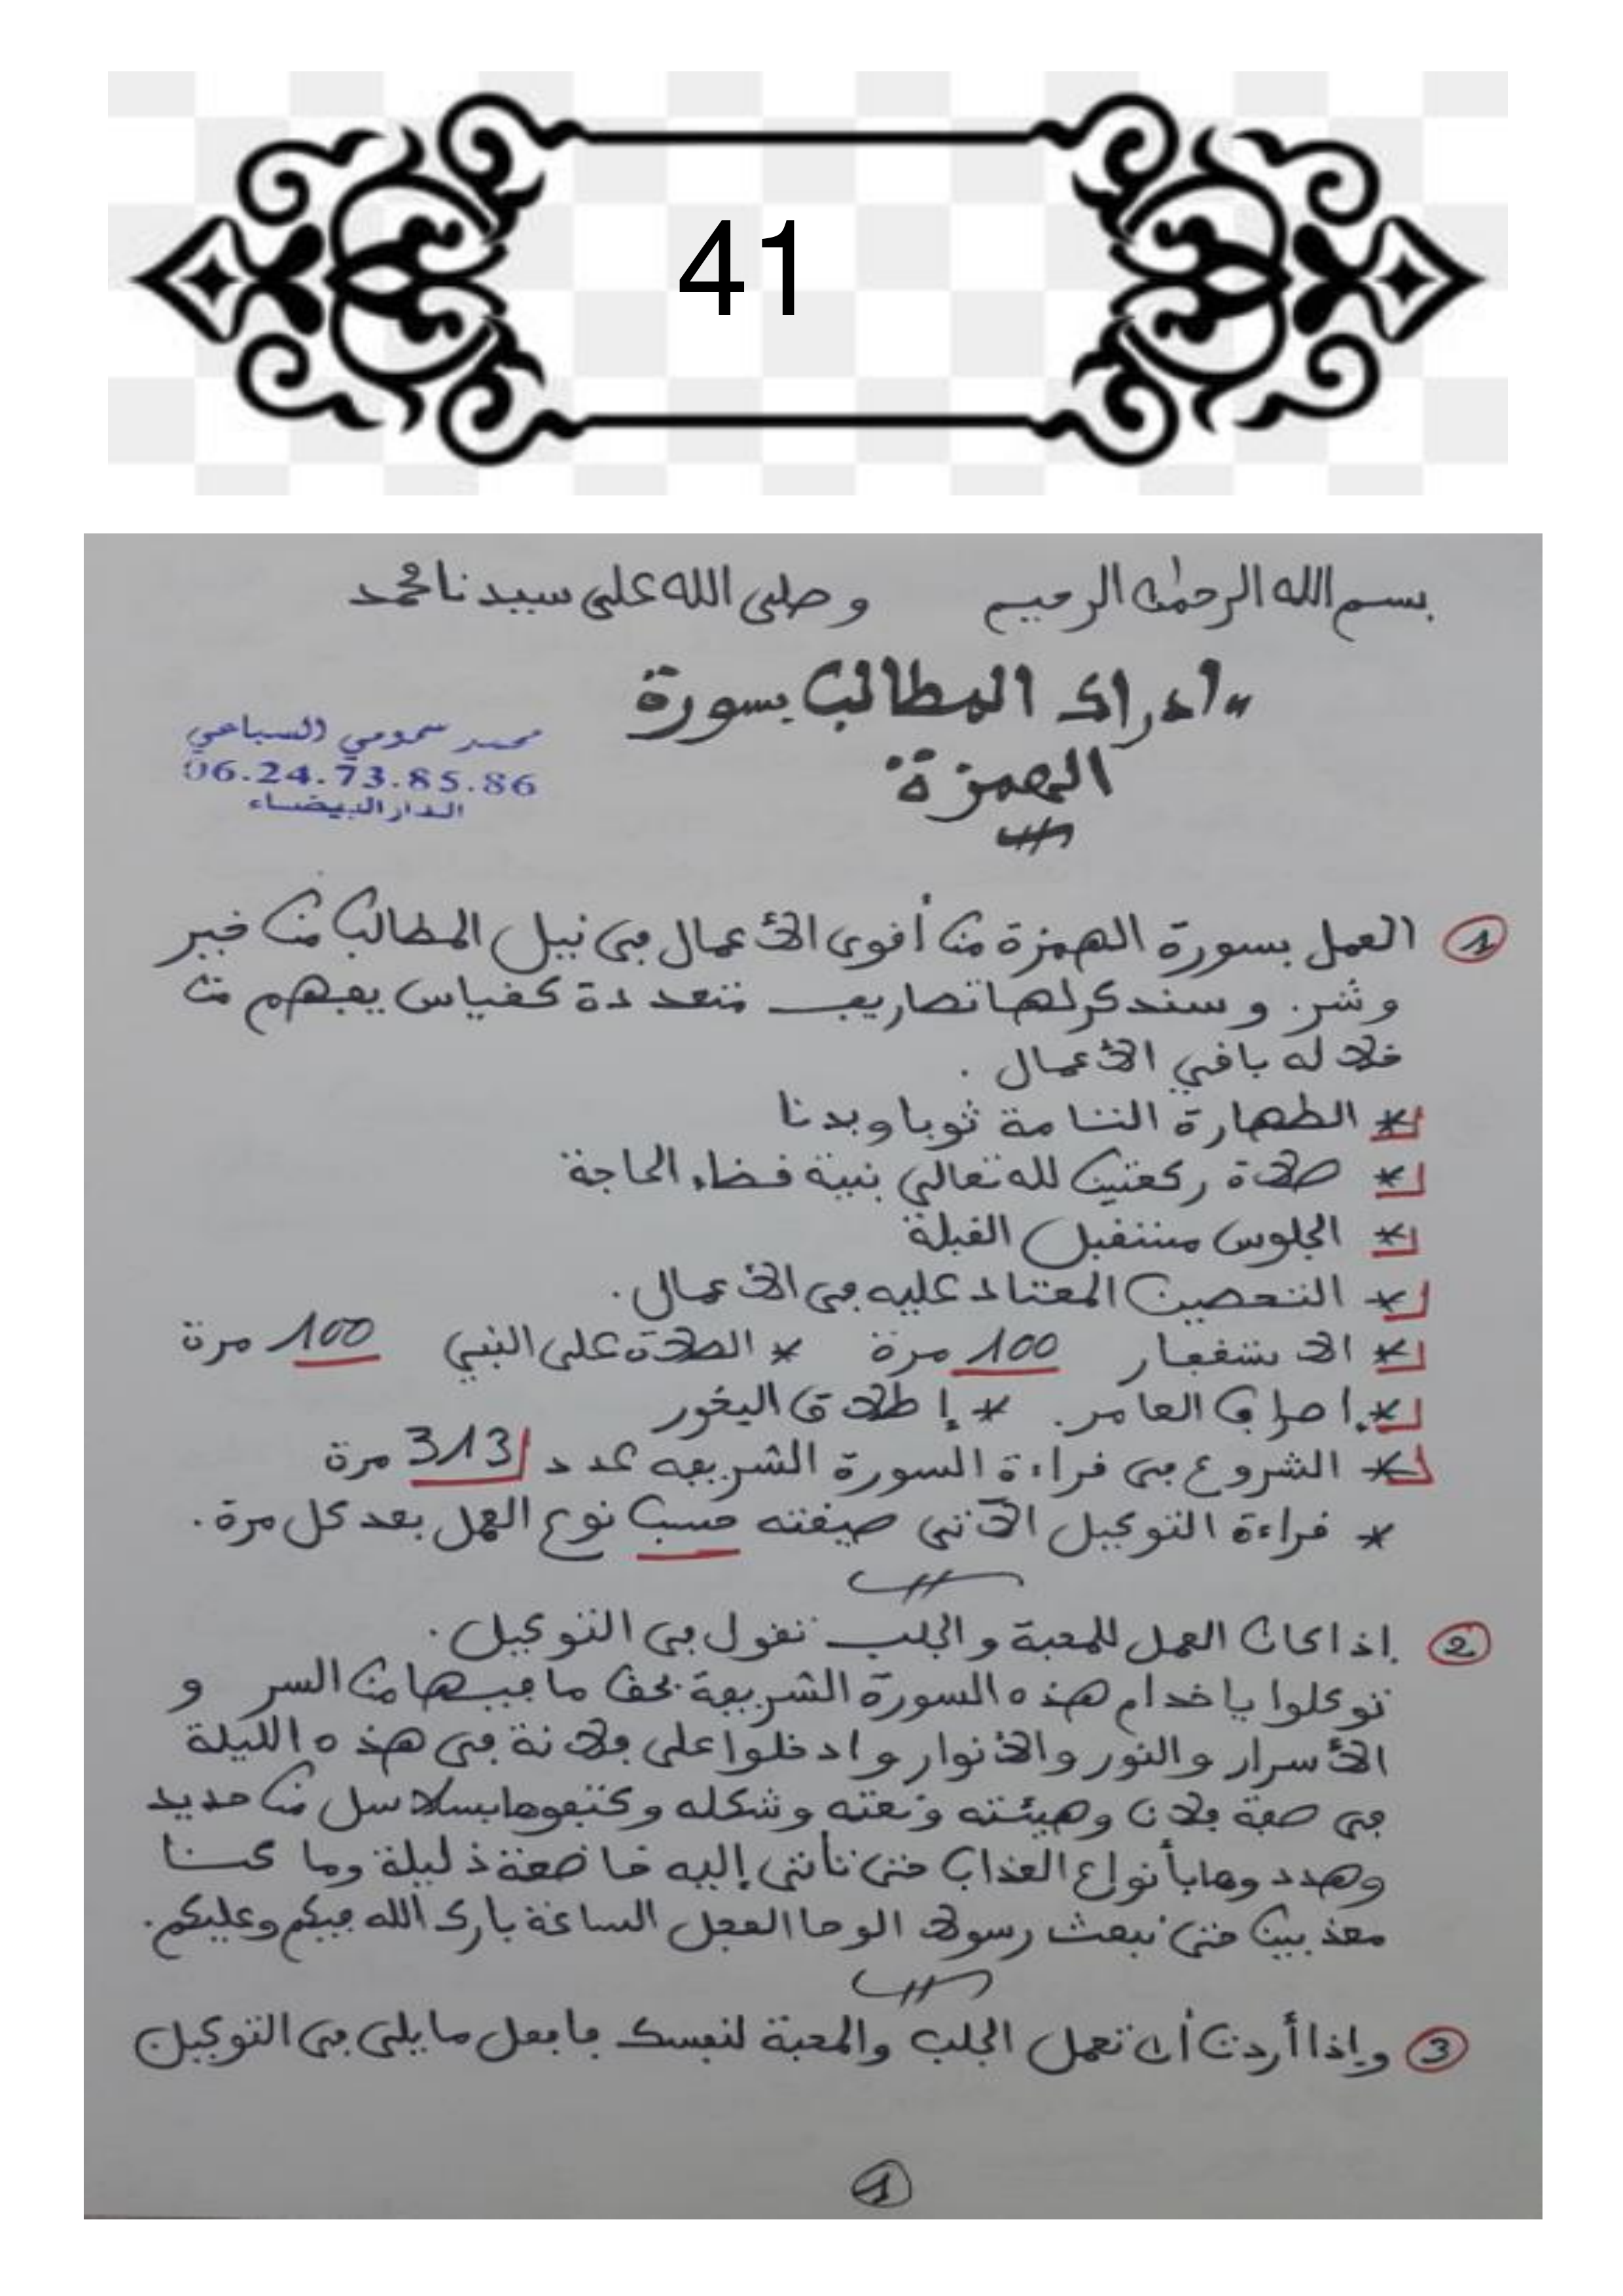 41
بسم الله الرحمٰن الرحيم وصلى الله على سيدنا محمد
"ادراك المطالب بسورة
الهمزة"
محمد سمومي السباعي
06.24.73.85.86
الدار البيضاء
1 العمل بسورة الهمزة من أقوى الأعمال في نيل المطالب من خير
وشر. وسنذكر لها تصاريف متعددة كقياس يفهم من
خلاله باقي الأعمال.
* الطهارة التامة ثوبا وبدنا
* صلاة ركعتين لله تعالى بنية قضاء الحاجة
* الجلوس مستقبل القبلة
* التحصين المعتاد عليه في الأعمال.
* الاستغفار 100 مرة * الصلاة على النبي 100 مرة
* إصراف العامر. * إطلاق البخور
* الشروع في قراءة السورة الشريفه عدد 313 مرة
* قراءة التوكيل الآتي صيغته حسب نوع العمل بعد كل مرة.
2 إذا كان العمل للمحبة والجلب تقول في التوكيل.
توكلوا يا خدام هذه السورة الشريفة بحق ما فيها من السر و
الأسرار والنور والأنوار وادخلوا على فلانة في هذه الليلة
في صفة فلان وهيئته ونعته وشكله وكتفوها بسلاسل من حديد
وهددوها بأنواع العذاب حتى تأتي إليه خاضعة ذليلة وما كنا
معذبين حتى نبعث رسولا الوحا العجل الساعة بارك الله فيكم وعليكم.
3 وإذا أردت أن تعمل الجلب والمحبة لنفسك فافعل ما يلي في التوكيل
1